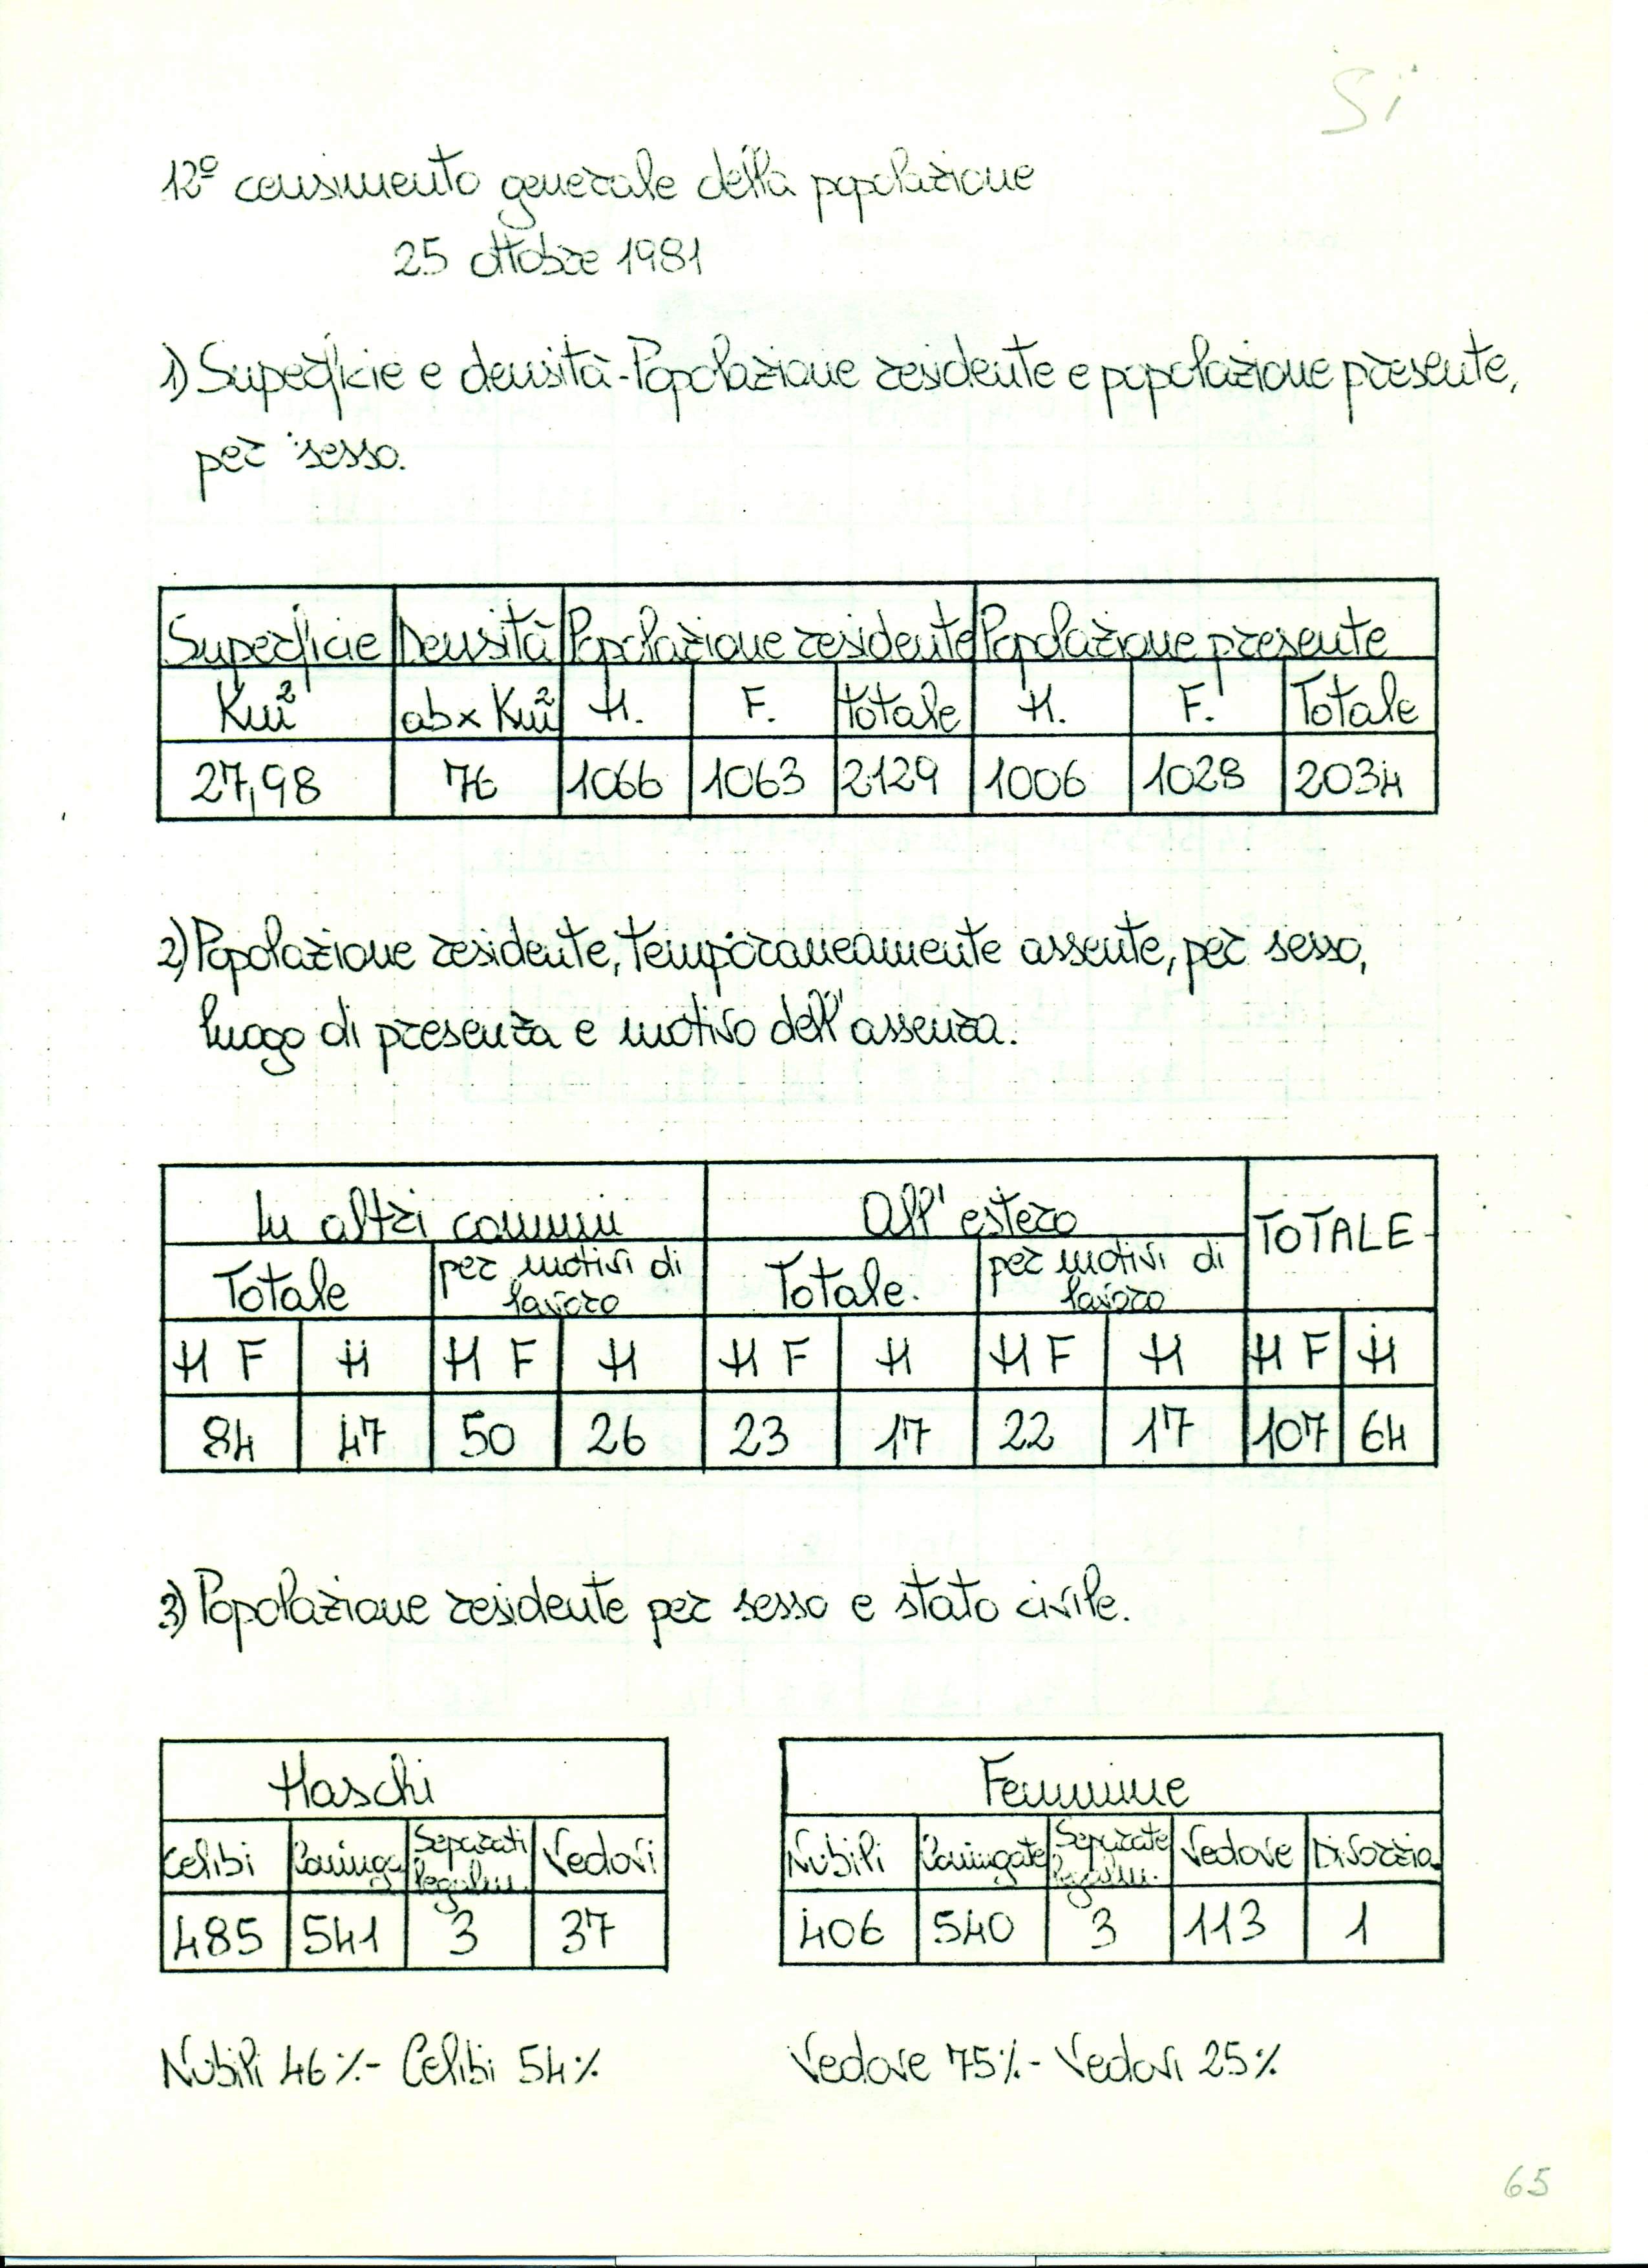 Si
12º censimento generale della popolazione
25 ottobre 1981
1) Superficie e densità - Popolazione residente e popolazione presente,
per sesso.
Superficie Densità Popolazione residente Popolazione presente
Km² ab x Km² M. F. Totale M. F. Totale
27,98 76 1066 1063 2129 1006 1028 2034
2) Popolazione residente, temporaneamente assente, per sesso,
luogo di presenza e motivo dell'assenza.
In altri comuni All'estero TOTALE
Totale per motivi di lavoro Totale per motivi di lavoro
M F M M F M M F M M F M M F M
84 47 50 26 23 17 22 17 107 64
3) Popolazione residente per sesso e stato civile.
Maschi
Celibi Coniuga Separati legalm. Vedovi
485 541 3 37
Femmine
Nubili Coniugate Separate legalm. Vedove Divorzia.
406 540 3 113 1
Nubili 46% - Celibi 54%
Vedove 75% - Vedovi 25%
65